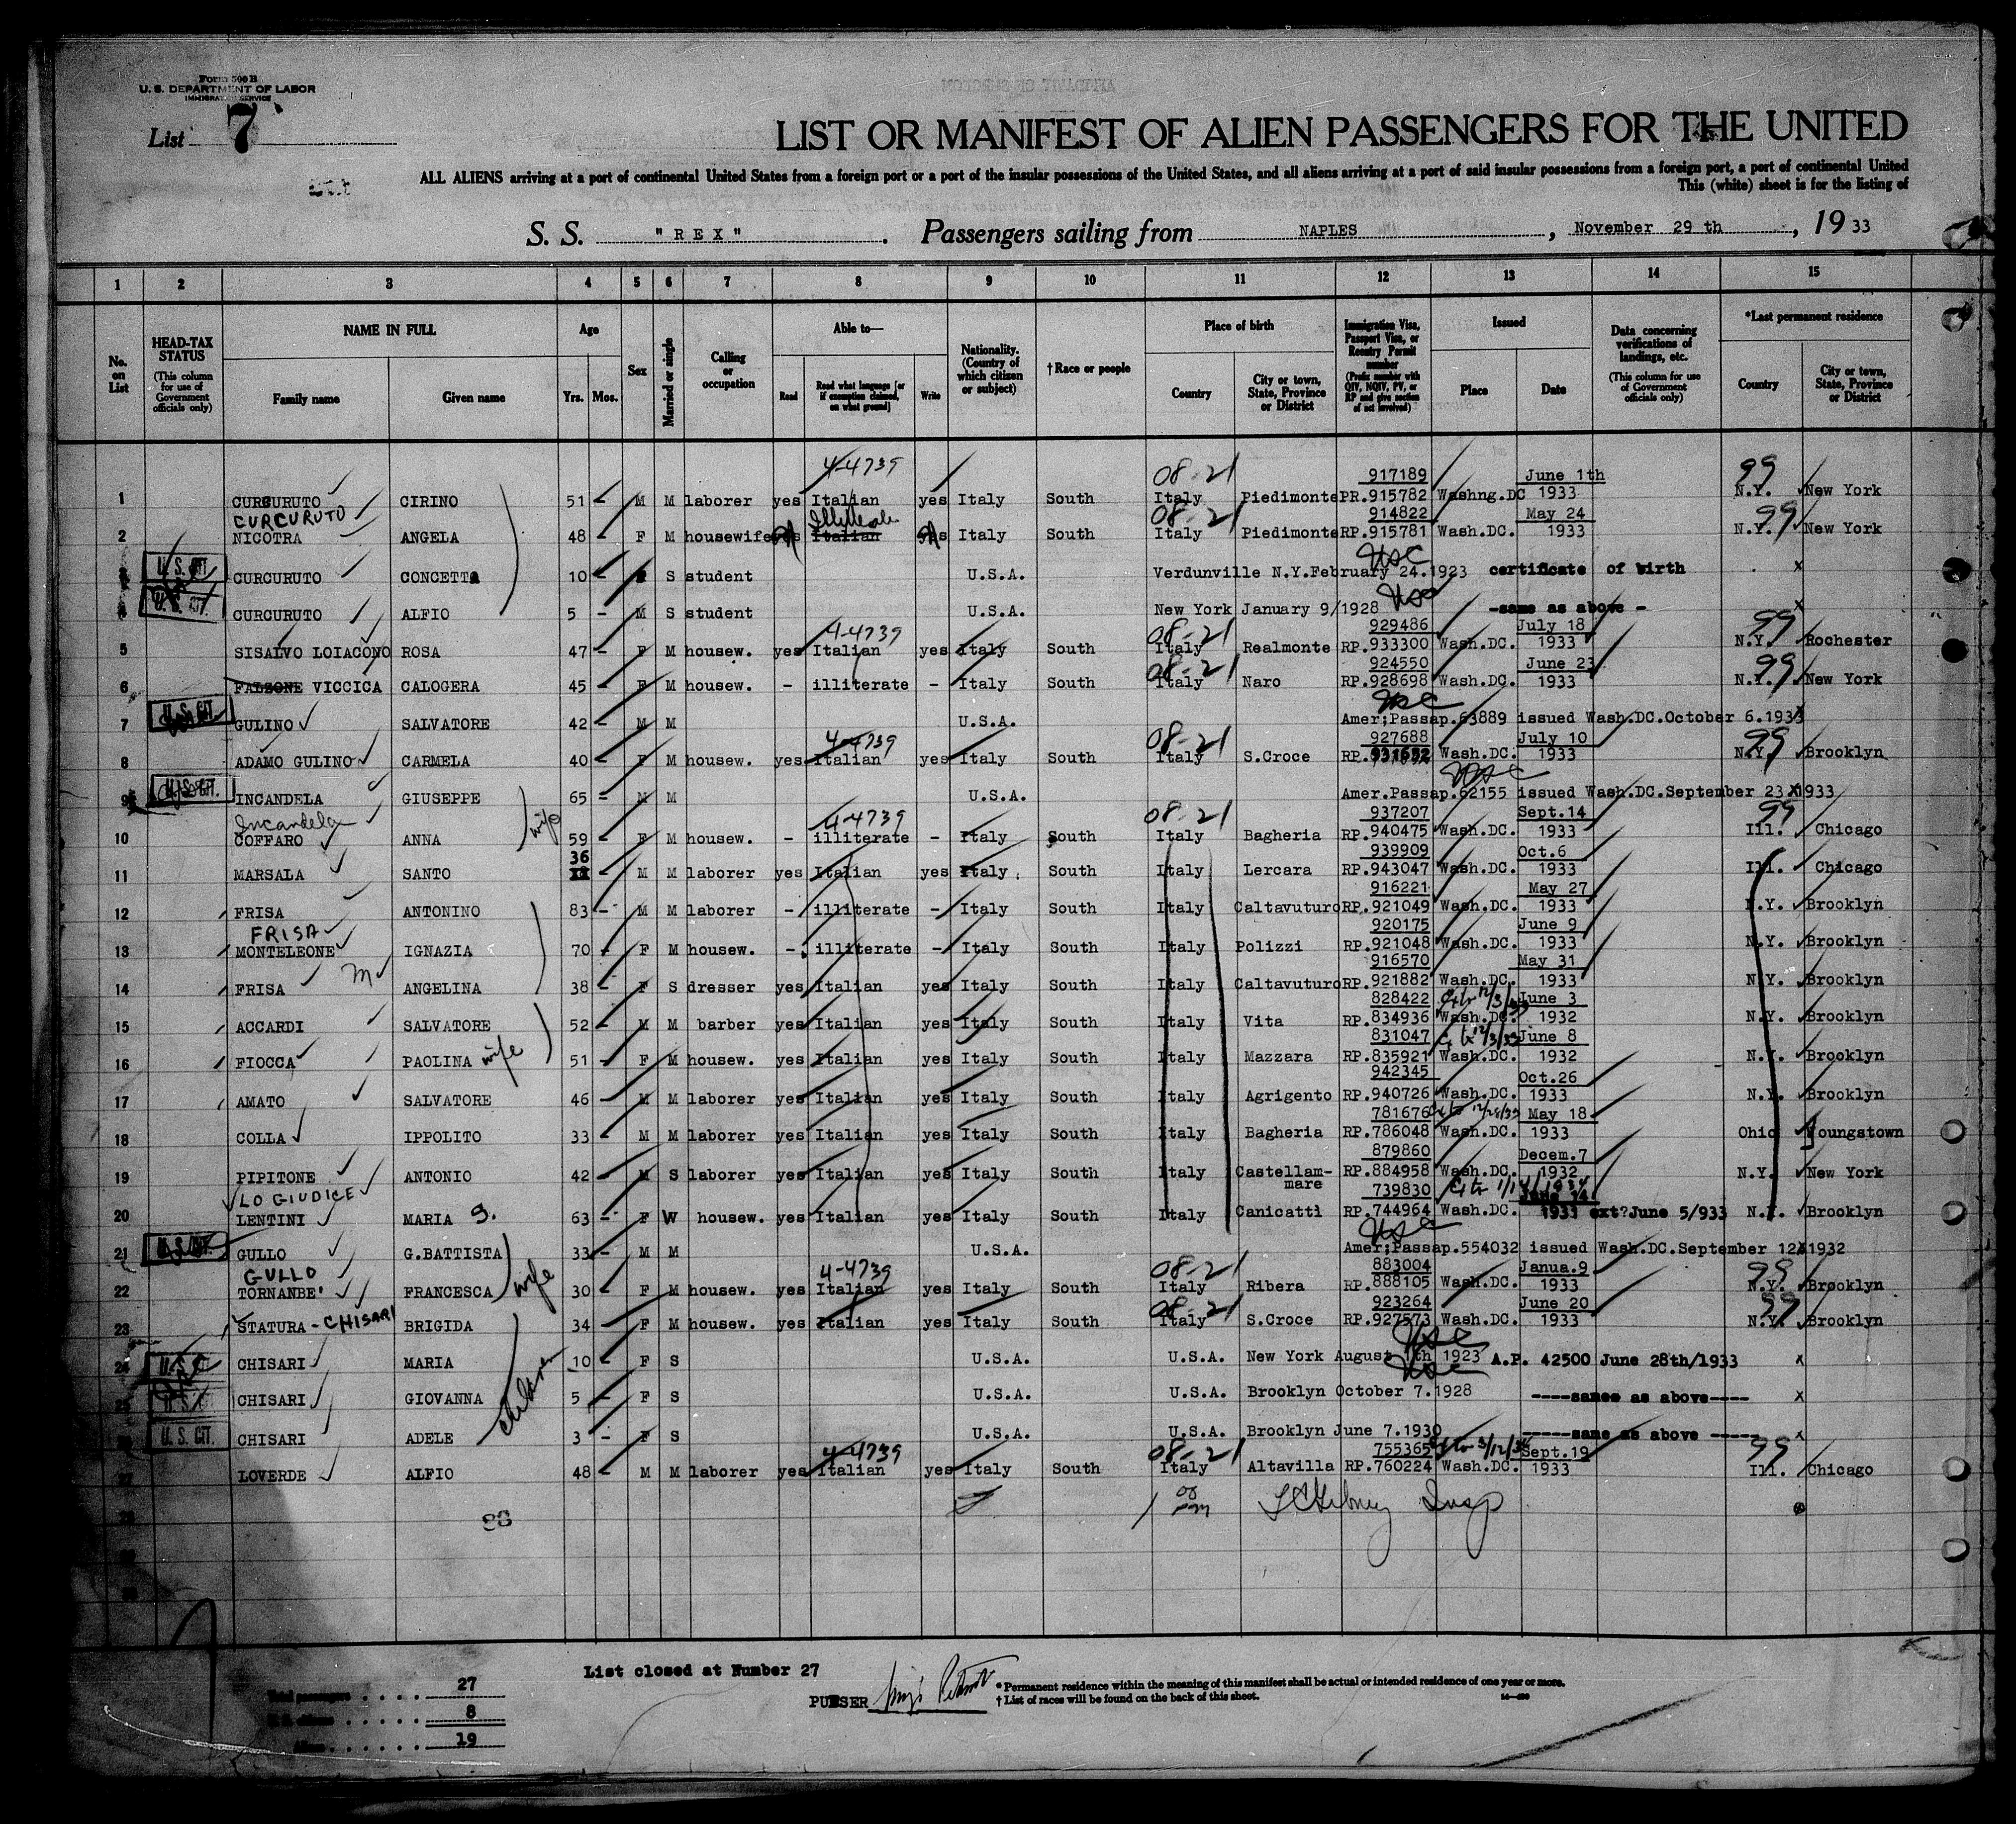 Form 500 B
U. S. DEPARTMENT OF LABOR
IMMIGRATION SERVICE
List 7
LIST OR MANIFEST OF ALIEN PASSENGERS FOR THE UNITED
ALL ALIENS arriving at a port of continental United States from a foreign port or a port of the insular possessions of the United States, and all aliens arriving at a port of said insular possessions from a foreign port, a port of continental United
This (white) sheet is for the listing of
S. S. " R E X " . Passengers sailing from NAPLES , November 29 th , 19 33
1 2 3 4 5 6 7 8 9 10 11 12 13 14 15
No. on List
HEAD-TAX STATUS (This column for use of Government officials only)
NAME IN FULL Family name Given name
Age Yrs. Mos.
Sex
Married or single
Calling or occupation
Able to— Read Read what language [or if exemption claimed, on what ground] Write
Nationality. (Country of which citizen or subject)
† Race or people
Place of birth Country City or town, State, Province or District
Immigration Visa, Passport Visa, or Reentry Permit number (Prefix number with QIV, NQIV, PV, or RP and give section of act involved)
Issued Place Date
Data concerning verifications of landings, etc. (This column for use of Government officials only)
*Last permanent residence Country City or town, State, Province or District
4-4739 08-21 917189 June 1th 99
1 CURCURUTO CIRINO 51 M M laborer yes Italian yes Italy South Italy Piedimonte PR.915782 Washng.DC 1933 N.Y. New York
CURCURUTO 08-21 914822 May 24 99
2 NICOTRA ANGELA 48 F M housewife Italian Italy South Italy Piedimonte RP.915781 Wash.DC. 1933 N.Y. New York
U.S. CIT. USC
3 CURCURUTO CONCETTA 10 S student U.S.A. Verdunville N.Y. February 24.1923 certificate of birth x
U.S. CIT. USC
4 CURCURUTO ALFIO 5 - M S student U.S.A. New York January 9/1928 -same as above - x
4-4739 08-21 929486 July 18 99
5 SISALVO LOIACONO ROSA 47 - F M housew. yes Italian yes Italy South Italy Realmonte RP.933300 Wash.DC. 1933 N.Y. Rochester
08-21 924550 June 23 99
6 FALZONE VICCICA CALOGERA 45 - F M housew. - illiterate - Italy South Italy Naro RP.928698 Wash.DC. 1933 N.Y. New York
U.S. CIT. USC
7 GULINO SALVATORE 42 - M M U.S.A. Amer;Passap.63889 issued Wash.DC.October 6.1933
4-4739 08-21 927688 July 10 99
8 ADAMO GULINO CARMELA 40 - F M housew. yes Italian yes Italy South Italy S.Croce RP.931652 Wash.DC. 1933 N.Y. Brooklyn
U.S. CIT. USC
9 INCANDELA GIUSEPPE 65 - M M U.S.A. Amer.Passap.62155 issued Wash.DC.September 23 1933
Incandela wife 4-4739 08-21 937207 Sept.14 99
10 COFFARO ANNA 59 - F M housew. - illiterate - Italy South Italy Bagheria RP.940475 Wash.DC. 1933 Ill. Chicago
36 939909 Oct.6
11 MARSALA SANTO M M laborer yes Italian yes Italy South Italy Lercara RP.943047 Wash.DC. 1933 Ill. Chicago
916221 May 27
12 FRISA ANTONINO 83 - M M laborer - illiterate - Italy South Italy Caltavuturo RP.921049 Wash.DC. 1933 N.Y. Brooklyn
FRISA 920175 June 9
13 MONTELEONE IGNAZIA 70 - F M housew. - illiterate - Italy South Italy Polizzi RP.921048 Wash.DC. 1933 N.Y. Brooklyn
M 916570 May 31
14 FRISA ANGELINA 38 - F S dresser yes Italian yes Italy South Italy Caltavuturo RP.921882 Wash.DC. 1933 N.Y. Brooklyn
828422 June 3
15 ACCARDI SALVATORE 52 - M M barber yes Italian yes Italy South Italy Vita RP.834936 Wash.DC. 1932 N.Y. Brooklyn
831047 June 8
16 FIOCCA PAOLINA wife 51 - F M housew. yes Italian yes Italy South Italy Mazzara RP.835921 Wash.DC. 1932 N.Y. Brooklyn
942345 Oct.26
17 AMATO SALVATORE 46 - M M laborer yes Italian yes Italy South Italy Agrigento RP.940726 Wash.DC. 1933 N.Y. Brooklyn
781676 May 18
18 COLLA IPPOLITO 33 - M M laborer yes Italian yes Italy South Italy Bagheria RP.786048 Wash.DC. 1933 Ohio Youngstown
879860 Decem.7
19 PIPITONE ANTONIO 42 - M S laborer yes Italian yes Italy South Italy Castellam-mare RP.884958 Wash.DC. 1932 N.Y. New York
LO GIUDICE 739830 June 14
20 LENTINI MARIA G. 63 - F W housew. yes Italian yes Italy South Italy Canicatti RP.744964 Wash.DC. 1933 ext?June 5/933 N.Y. Brooklyn
U.S. CIT. USC
21 GULLO G.BATTISTA 33 - M M U.S.A. Amer;Passap.554032 issued Wash.DC.September 12 1932
GULLO wife 4-4739 08-21 883004 Janua.9 99
22 TORNANBE' FRANCESCA 30 - F M housew. yes Italian yes Italy South Italy Ribera RP.888105 Wash.DC. 1933 N.Y. Brooklyn
08-21 923264 June 20 99
23 STATURA - CHISARI BRIGIDA 34 - F M housew. yes Italian yes Italy South Italy S.Croce RP.927573 Wash.DC. 1933 N.Y. Brooklyn
USC
24 CHISARI MARIA 10 - F S U.S.A. U.S.A. New York August 1th 1923 A.P. 42500 June 28th/1933 x
children USC
25 CHISARI GIOVANNA 5 - F S U.S.A. U.S.A. Brooklyn October 7.1928 ----same as above---- x
U.S. CIT.
26 CHISARI ADELE 3 - F S U.S.A. U.S.A. Brooklyn June 7.1930 -----same as above ----- x
4-4739 08-21 755365 Sept.19 99
27 LOVERDE ALFIO 48 - M M laborer yes Italian yes Italy South Italy Altavilla RP.760224 Wash.DC. 1933 Ill. Chicago
Insp
List closed at Number 27
Total passengers 27
U.S. citizens 8
Aliens 19
PURSER
* Permanent residence within the meaning of this manifest shall be actual or intended residence of one year or more.
† List of races will be found on the back of this sheet.